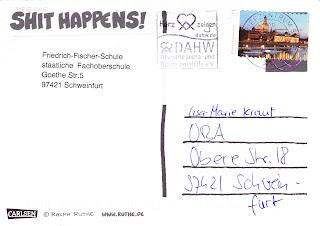 SHIT HAPPENS!
Friedrich-Fischer-Schule
staatliche Fachoberschule
Goethe Str.5
97421 Schweinfurt
Herz zeigen
dahw.de
DAHW
Deutsche Lepra- und
Tuberkulosehilfe e.V.
Lisa-Marie Kraut
ORA
Obere Str. 18
97421 Schwein-
furt
CARLSEN
© RALPH RUTHE
WWW.RUTHE.DE